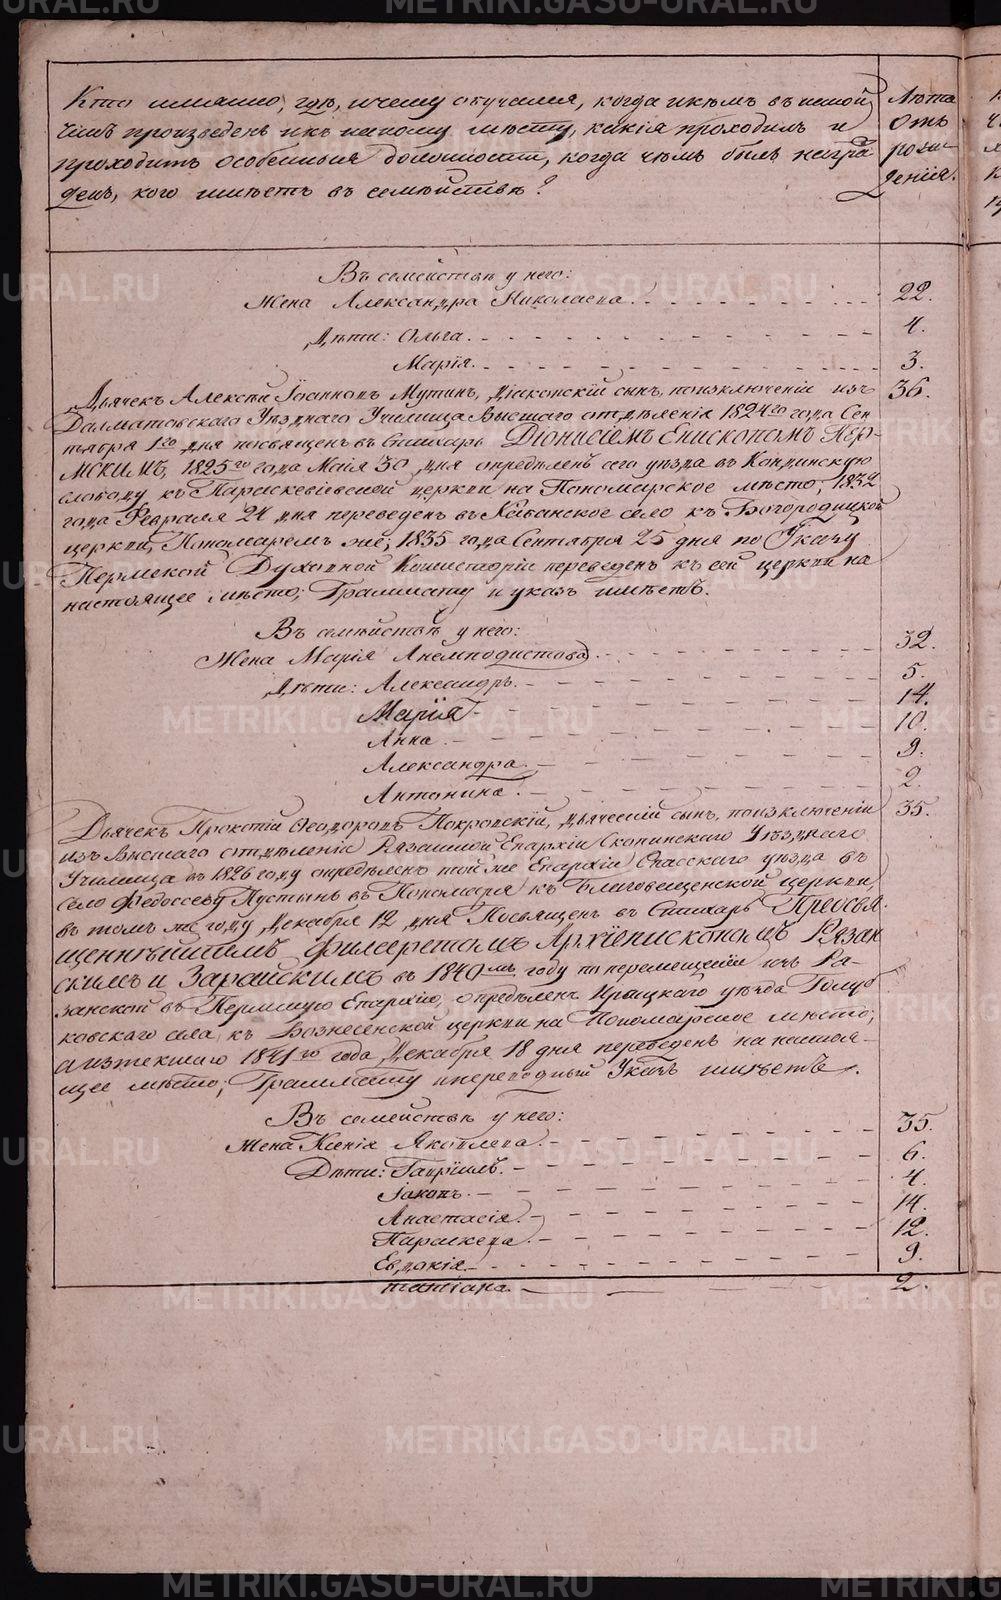 Кто именно, гдѣ, и чему обучался, когда и кѣмъ въ какой	Лѣта
чинъ произведенъ и къ какому мѣсту, какія проходилъ и	отъ
проходитъ особенныя должности, когда чѣмъ былъ награ-	рож-
денъ, кого имѣетъ въ семействѣ?	денія.
Въ семействѣ у него:
Жена Александра Николаева	22.
Дѣти: Ольга	4.
Марія	3.
Дьячекъ Алексѣй Іоанновъ Мутинъ, Діаконскій сынъ, по изключеніи изъ	36.
Далматовскаго Уѣзднаго Училища Высшаго отдѣленія 1824го года Сен-
тября 1го дня посвященъ въ Стихарь Діонисіемъ Епископомъ Пер-
мскимъ, 1825го года Маія 30 дня опредѣленъ сего уѣзда въ Кондинскую
слободу къ Параскевіевской церкви на Пономарское мѣсто, 1832
года Февраля 24 дня переведенъ въ Кабанское село къ Богородицкой
церкви, Пономаремъ же, 1835 года Сентября 25 дня по Указу
Пермской Духовной Консисторіи переведенъ къ сей церкви на
настоящее мѣсто; Граммату и указъ имѣетъ.
Въ семѣйствѣ у него:
Жена Марія Анемподистова	32.
Дѣти: Александръ	5.
Марія	14.
Анна	10.
Александра	9.
Антонина	2.
Дьячекъ Прокопій Ѳеодоровъ Покровскій, дьяческій сынъ, по изключеніи	35.
изъ высшаго отдѣленія Рязанской Епархіи Скопинскаго Уѣзднаго
Училища въ 1826 году опредѣленъ той же Епархіи Спасскаго уѣзда въ
село Федоссеву Пустынь въ Пономаря къ Благовещенской церкви,
въ томъ же году Декабря 12 дня Посвященъ въ Стихарь Преосвя-
щеннѣйшимъ Филаретомъ Архіепископомъ Рязан
скимъ и Зарайскимъ въ 1840мъ году по перемещеніи изъ Ря-
занской въ Пермскую Епархію, опредѣленъ Ирбицкаго уѣзда Голуб
ковскаго села къ Вознесенской церкви на Пономарское мѣсто;
а изтекшаго 1841го года Декабря 18 дня переведенъ на настоя-
щее мѣсто; Граммату и переводный Указъ имѣетъ.
Въ семействѣ у него:
Жена Ксенія Яковлева	35.
Дѣти: Гавріилъ	6.
Іаковъ	4.
Анастасія	14.
Параскева	12.
Евдокія	9.
татіана	2.
METRIKI.GASO-URAL.RU